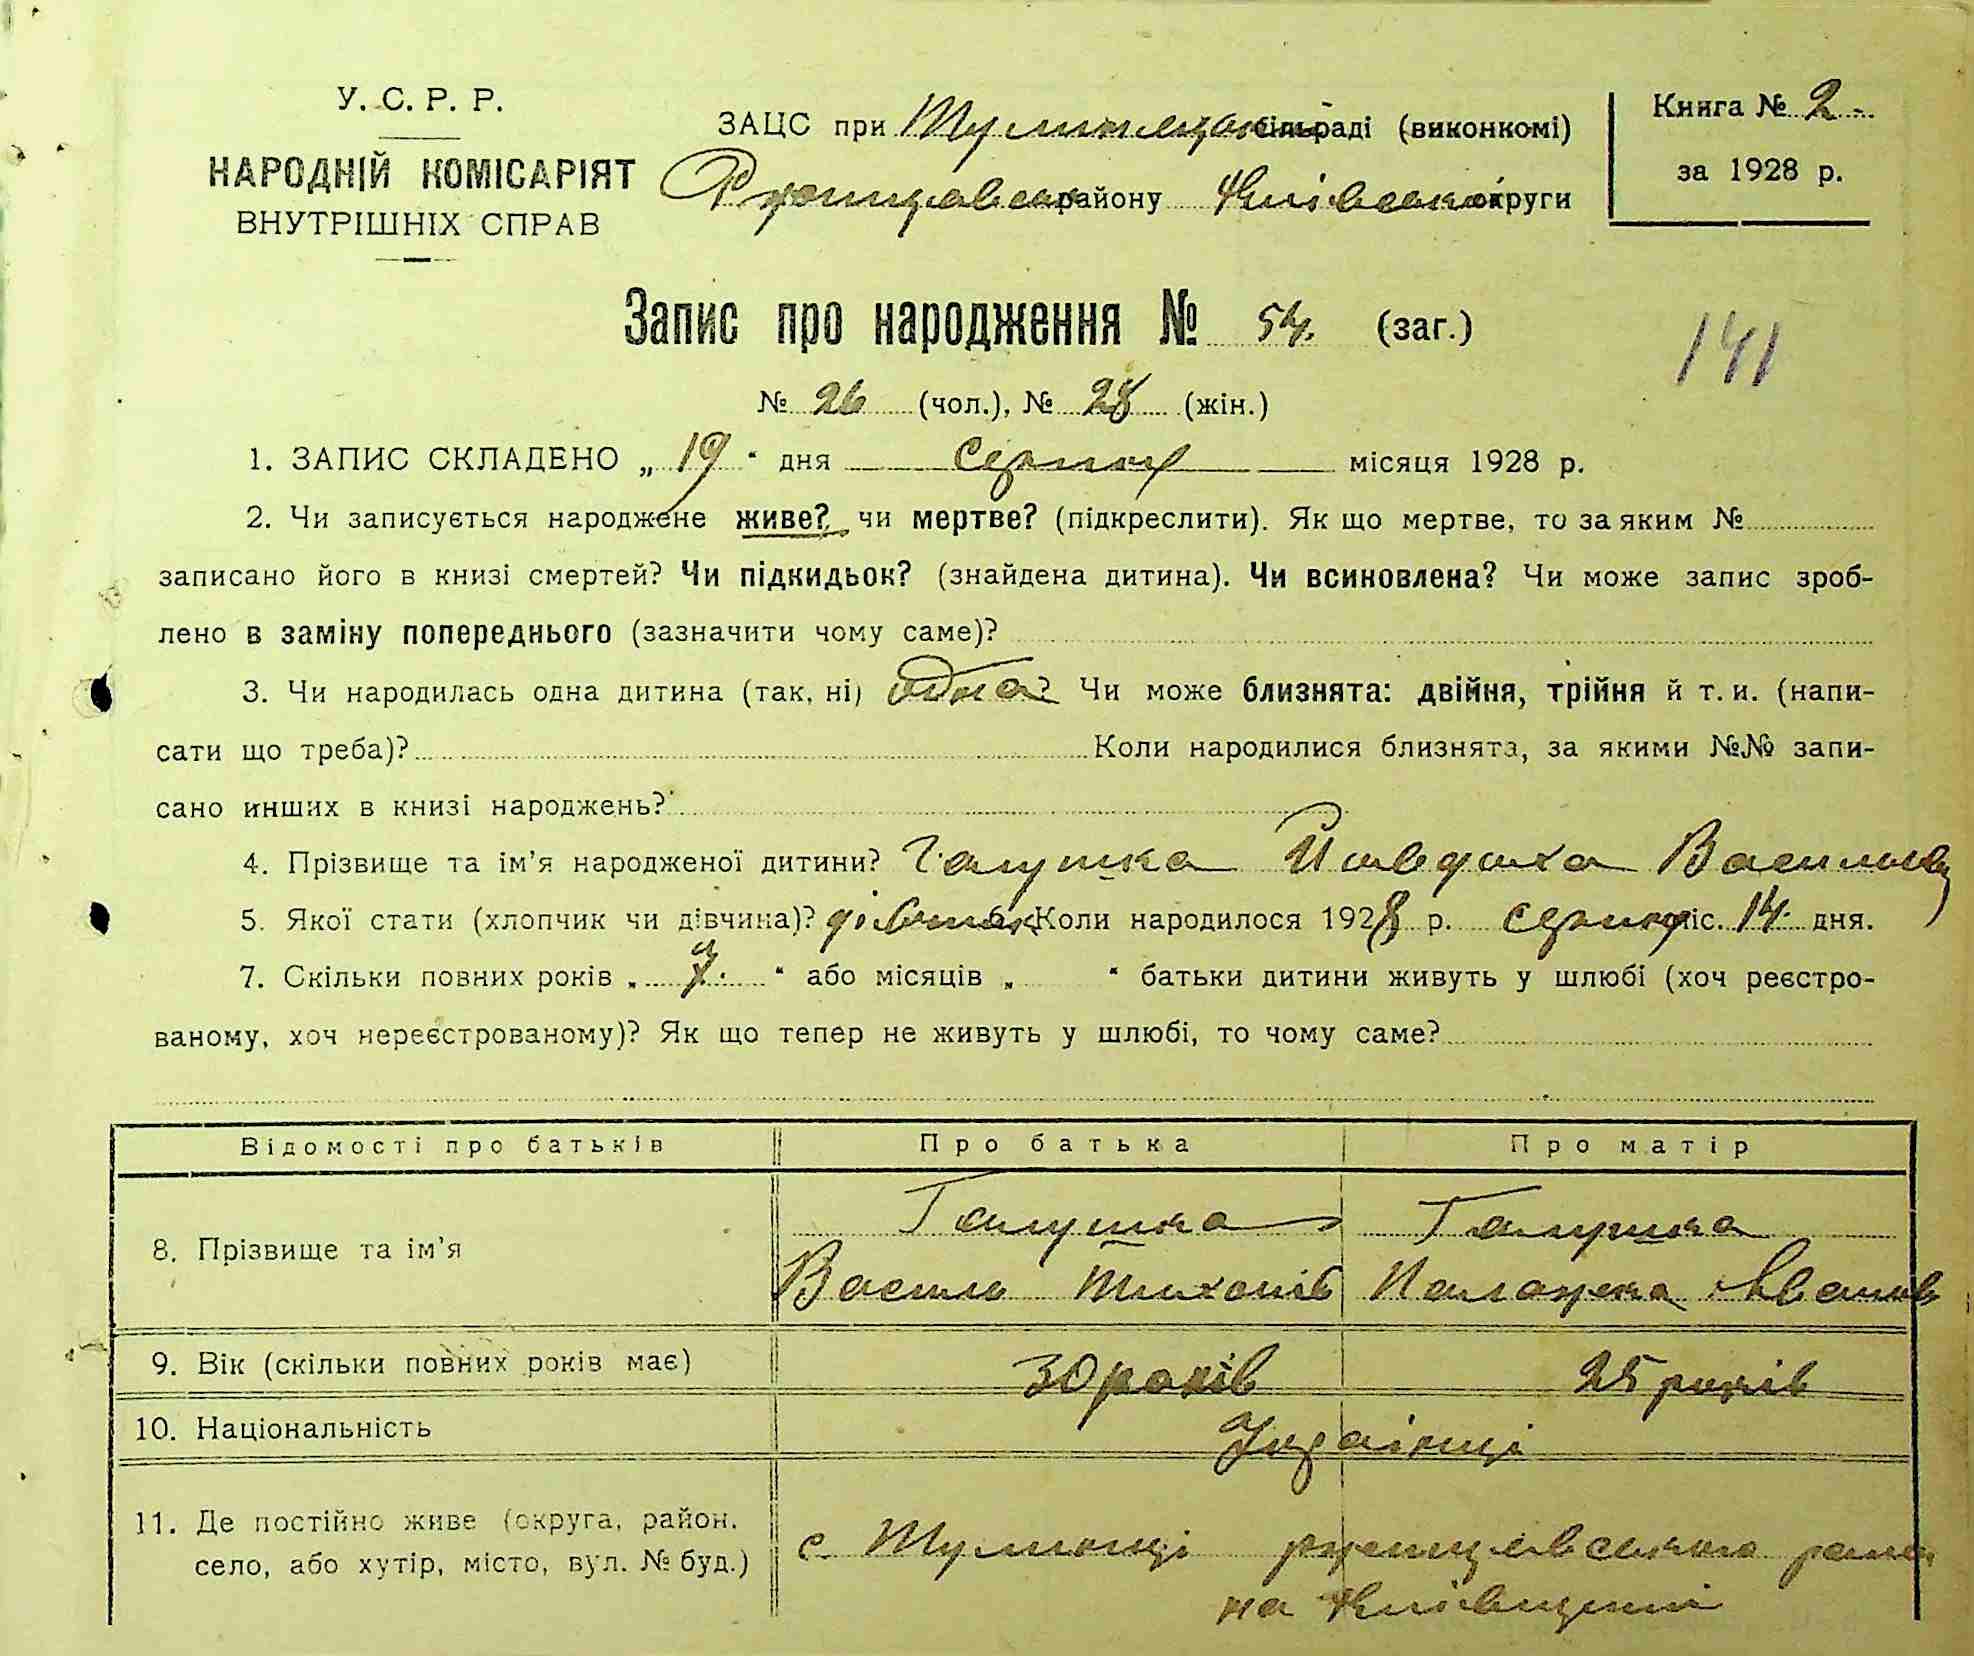 У. С. Р. Р.
НАРОДНІЙ КОМІСАРІЯТ
ВНУТРІШНІХ СПРАВ
ЗАЦС при Тулинецькій сільраді (виконкомі)
району Київської округи
Книга № 2
за 1928 р.
Запис про народження № 54. (заг.)
141
№ 26 (чол.), № 28 (жін.)
1. ЗАПИС СКЛАДЕНО „ 19 “ дня Серпня місяця 1928 р.
2. Чи записується народжене живе? чи мертве? (підкреслити). Як що мертве, то за яким №
записано його в книзі смертей? Чи підкидьок? (знайдена дитина). Чи всиновлена? Чи може запис зроб-
лено в заміну попереднього (зазначити чому саме)?
3. Чи народилась одна дитина (так, ні) одна? Чи може близнята: двійня, трійня й т. и. (напи-
сати що треба)? Коли народилися близнята, за якими №№ запи-
сано инших в книзі народжень?
4. Прізвище та ім’я народженої дитини? Галушка
5. Якої стати (хлопчик чи дівчина)? Коли народилося 1928 р. серпня міс. 14 дня.
7. Скільки повних років „ 7 “ або місяців „ “ батьки дитини живуть у шлюбі (хоч реєстро-
ваному, хоч нереєстрованому)? Як що тепер не живуть у шлюбі, то чому саме?
Відомості про батьків Про батька Про матір
8. Прізвище та ім’я
Галушка Галушка
Василь Тихонів
9. Вік (скільки повних років має) 30 років 25 років
10. Національність Українці
11. Де постійно живе (округа, район.
село, або хутір, місто, вул. № буд.)
с. Тулинці
на Київщині